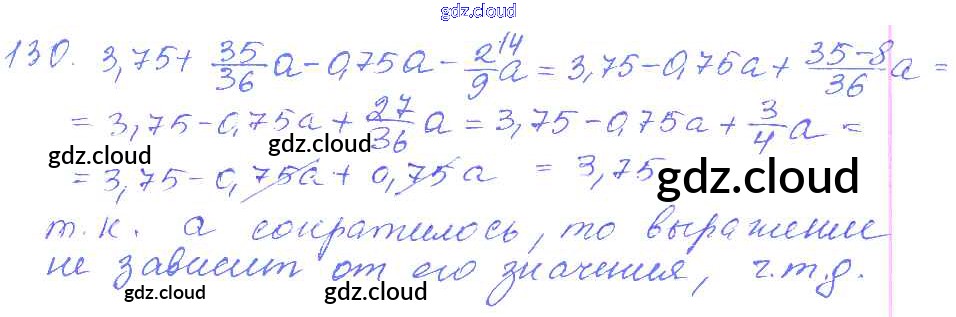 gdz.cloud
130. 3,75+ 35/36 a - 0,75a - 2^14/9 a = 3,75 - 0,75a + 35-8/36 a =
= 3,75 - 0,75a + 27/36 a = 3,75 - 0,75a + 3/4 a =
gdz.cloud gdz.cloud
= 3,75 - 0,75a + 0,75a = 3,75
gdz.cloud
т.к. а сократилось, то выражение
не зависит от его значения, ч.т.д.
gdz.cloud gdz.cloud